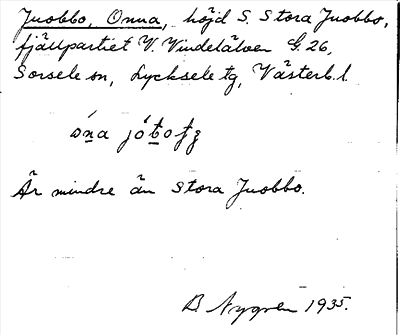 Juobbo, Onna, höjd S. Stora Juobbo,
fjällpartiet V. Vindelälven G. 26,
Sorsele sn, Lycksele tg, Västerb. l.
Är mindre än Stora Juobbo.
B Nygren 1935.